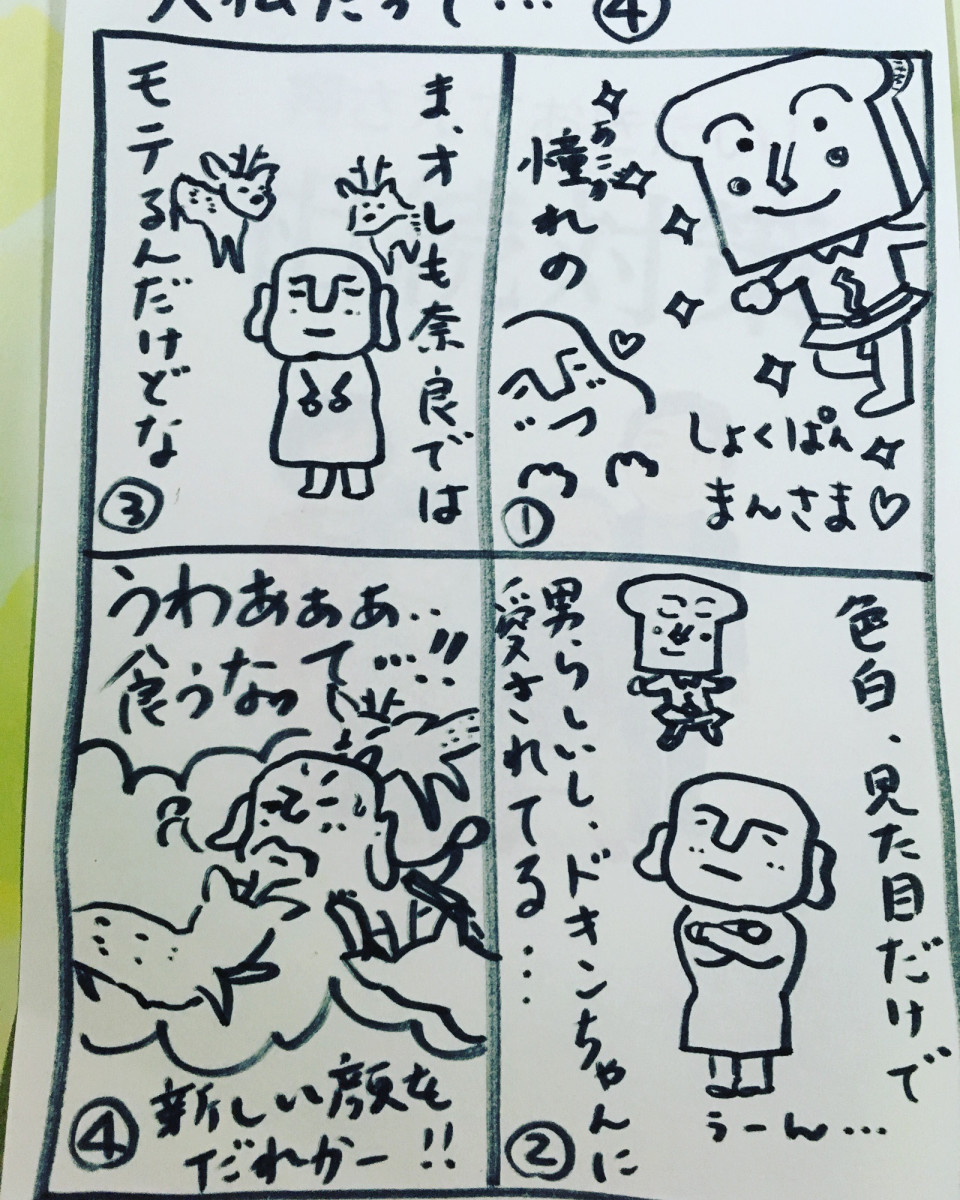 大仏だって… ④
憧れの
あこが
しょくぱん
まんさま♡
①
色白、見た目だけで
男らしいし、ドキンちゃんに
愛されてる…
うーん…
②
ま、オレも奈良では
モテるんだけどな
③
うわあぁぁ…
食うなって…!!
新しい顔を
だれかー!!
④